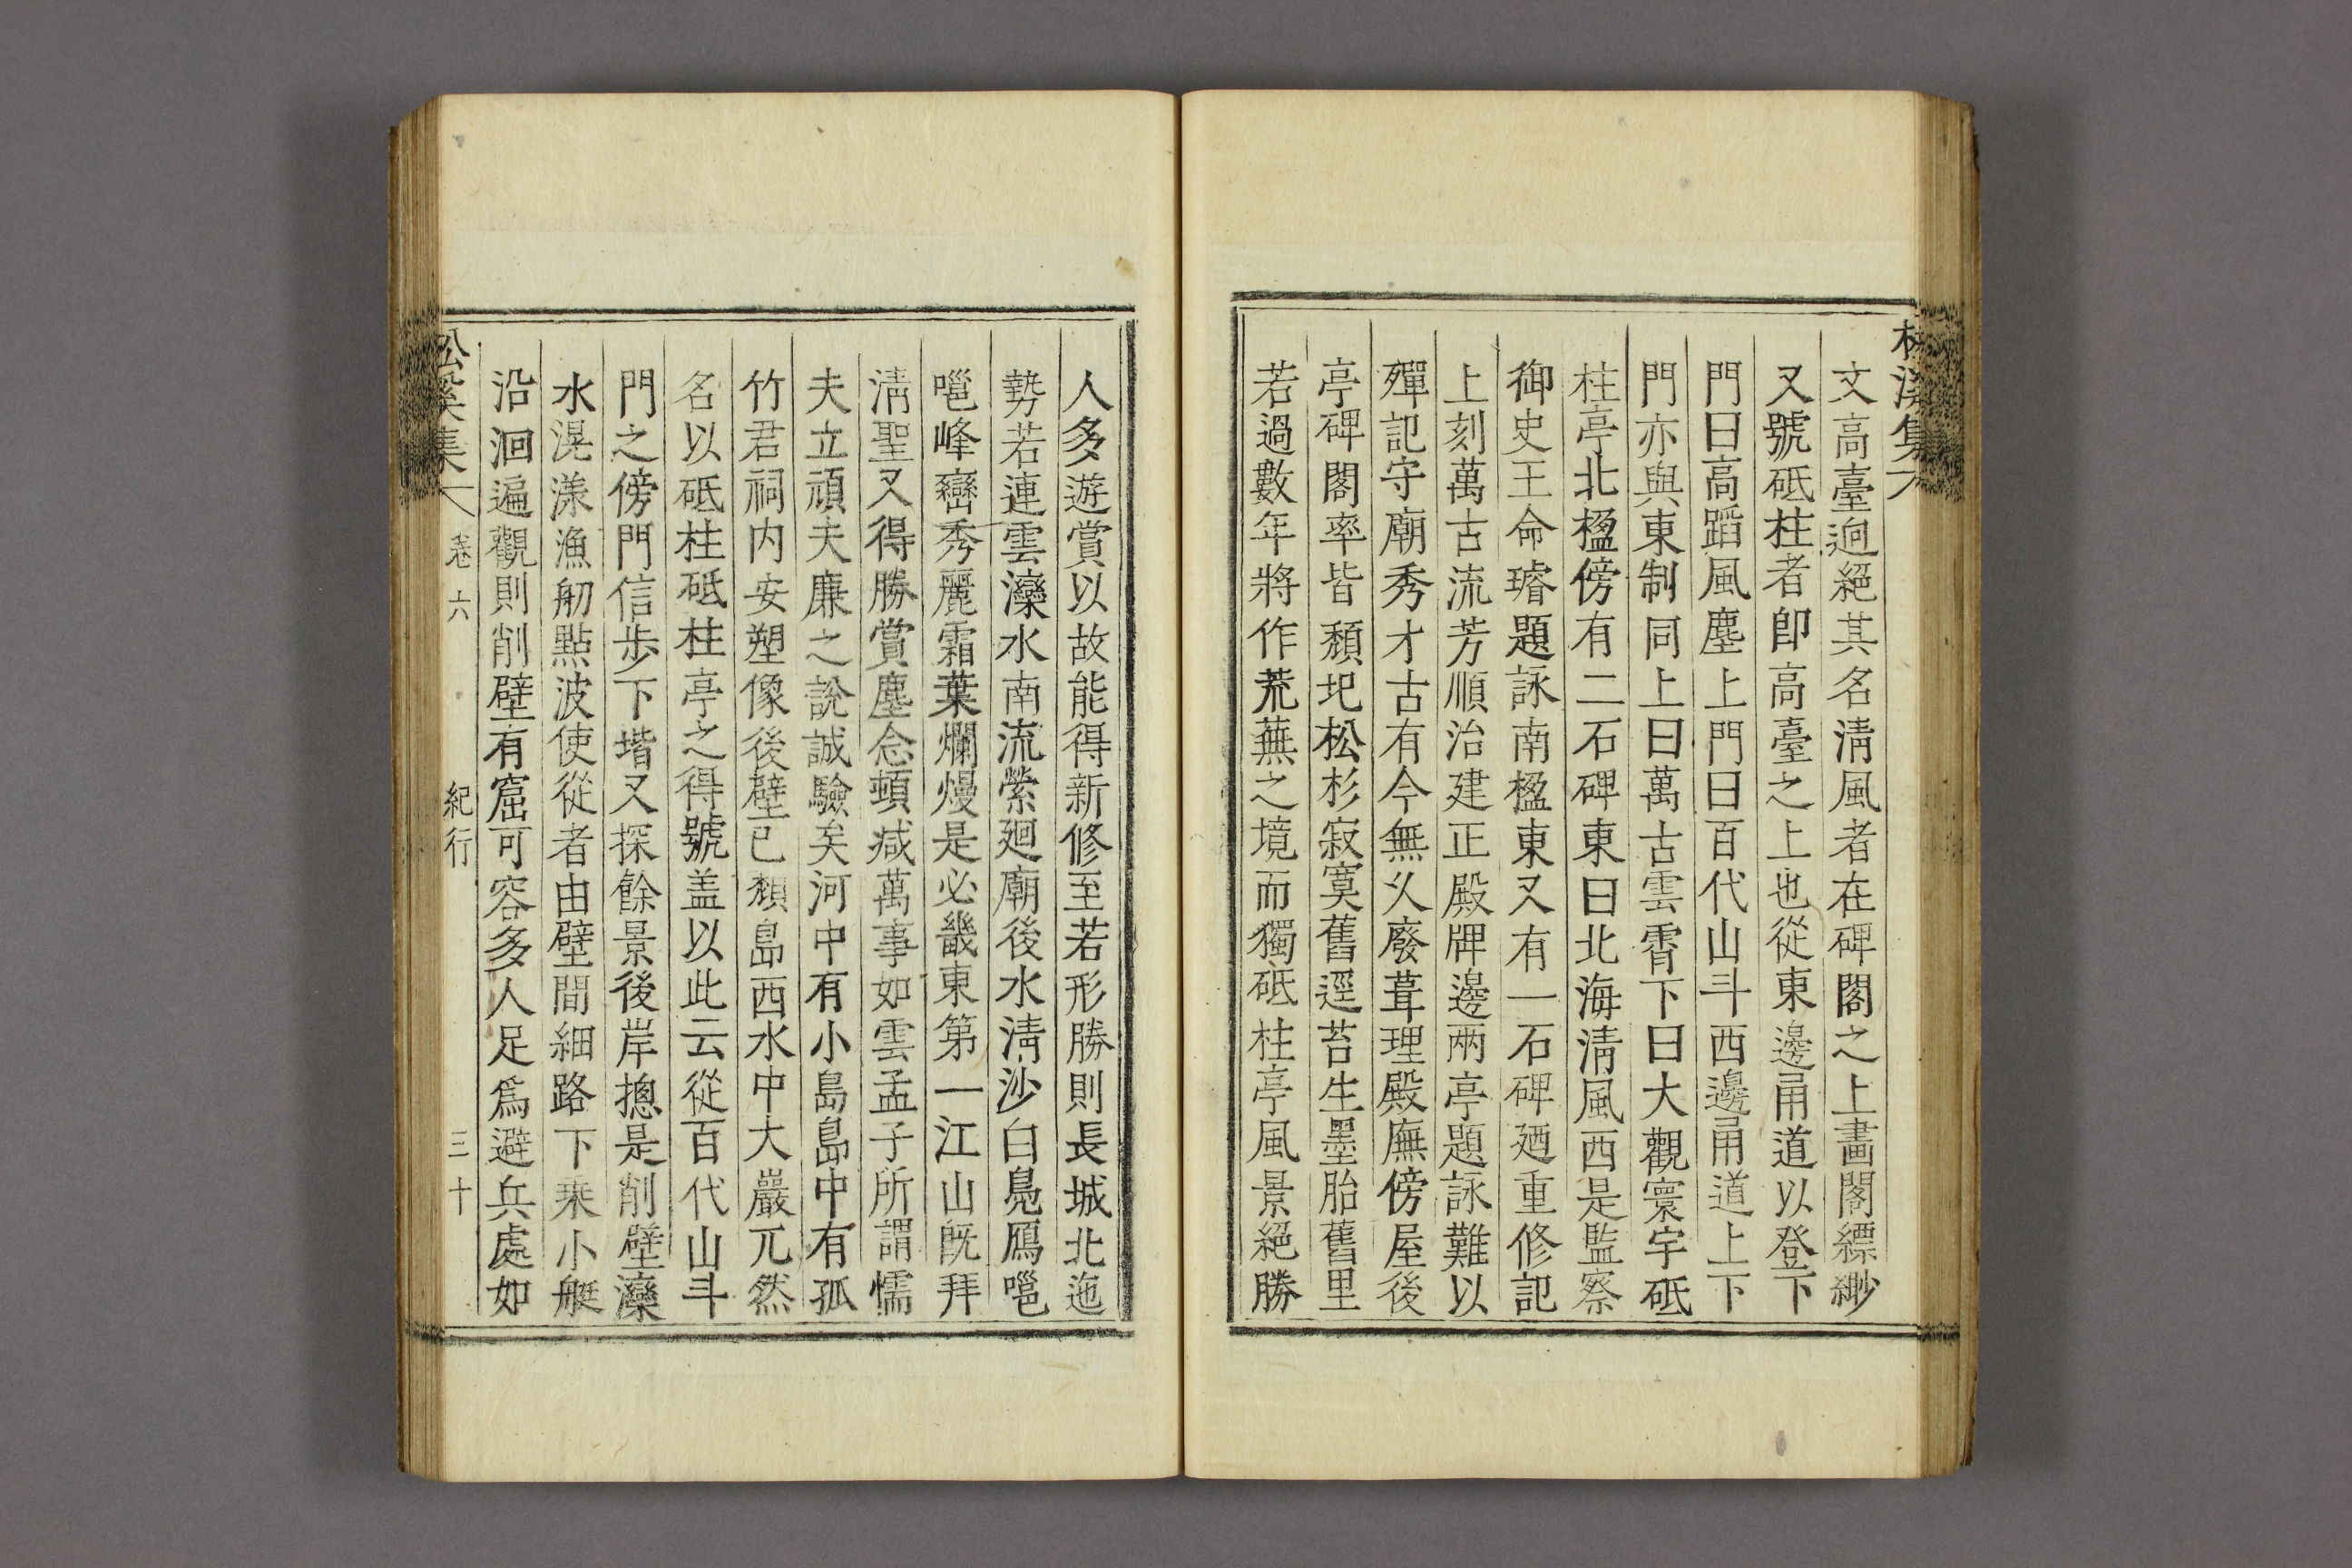 松溪集
文高臺逈絕其名清風者在碑閣之上畵閣縹緲
又號砥柱者卽高臺之上也從東邊甬道以登下
門曰高蹈風塵上門曰百代山斗西邊甬道上下
門亦與東制同上曰萬古雲霄下曰大觀寰宇砥
柱亭北楹傍有二石碑東曰北海淸風西是監察
御史王命璿題詠南楹東又有一石碑廼重修記
上刻萬古流芳順治建正殿牌邊兩亭題詠難以
殫記守廟秀才古有今無乆廢葺理殿廡傍屋後
亭碑閣率皆頹圯松杉寂寞舊逕苔生墨胎舊里
若過數年將作荒蕪之境而獨砥柱亭風景絕勝
人多遊賞以故能得新修至若形勝則長城北迤
勢若連雲灤水南流縈廻廟後水淸沙白鳧鴈嗈
嗈峰巒秀麗霜葉爛熳是必畿東第一江山旣拜
淸聖又得勝賞塵念頓减萬事如雲孟子所謂懦
夫立頑夫廉之說誠驗矣河中有小島島中有孤
竹君祠内安塑像後壁已頹島西水中大巖兀然
名以砥柱砥柱亭之得號盖以此云從百代山斗
門之傍門信步下堦又探餘景後岸摠是削壁灤
水滉漾漁舠點波使從者由壁間細路下乗小艇
沿洄遍觀則削壁有窟可容多人足爲避兵處如
松溪集
卷六
紀行
三十